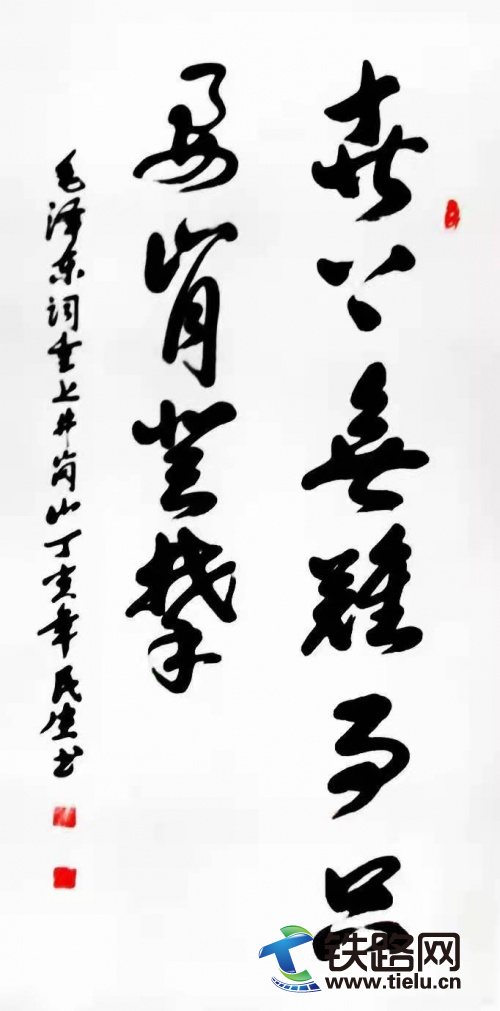 世上無難事只
要肯登攀
毛泽东词重上井岗山丁亥年民生书
铁路网
www.tielu.cn